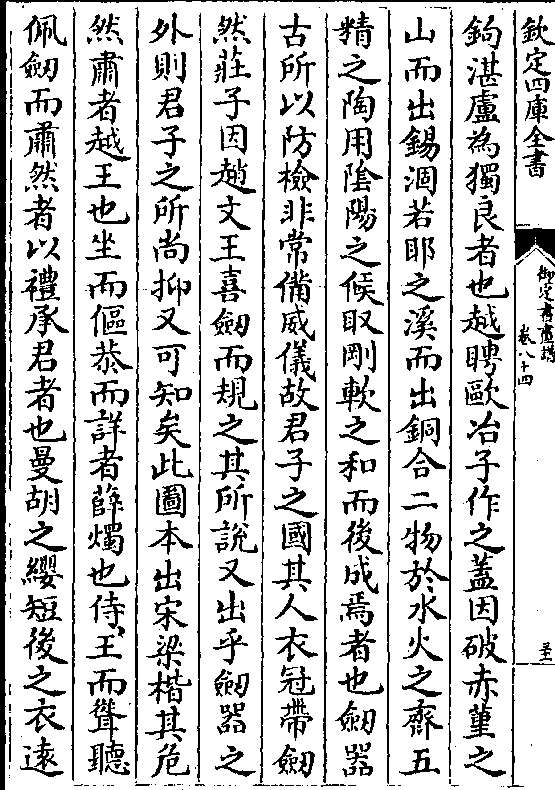 欽定四庫全書
御定書畫譜
卷八十四
鉤湛盧為獨良者也越聘歐冶子作之蓋因破赤堇之
山而出錫涸若耶之溪而出銅合二物於水火之齊五
精之陶用隂陽之候取剛軟之和而後成焉者也劒器
古所以防檢非常備威儀故君子之國其人衣冠帶劒
然莊子因趙文王喜劒而規之其所說又出乎劒器之
外則君子之所尚抑又可知矣此圖本出宋梁楷其危
然肅者越王也坐而傴恭而詳者薛燭也侍王而聳聽
佩劒而肅然者以禮承君者也曼胡之纓短後之衣遠